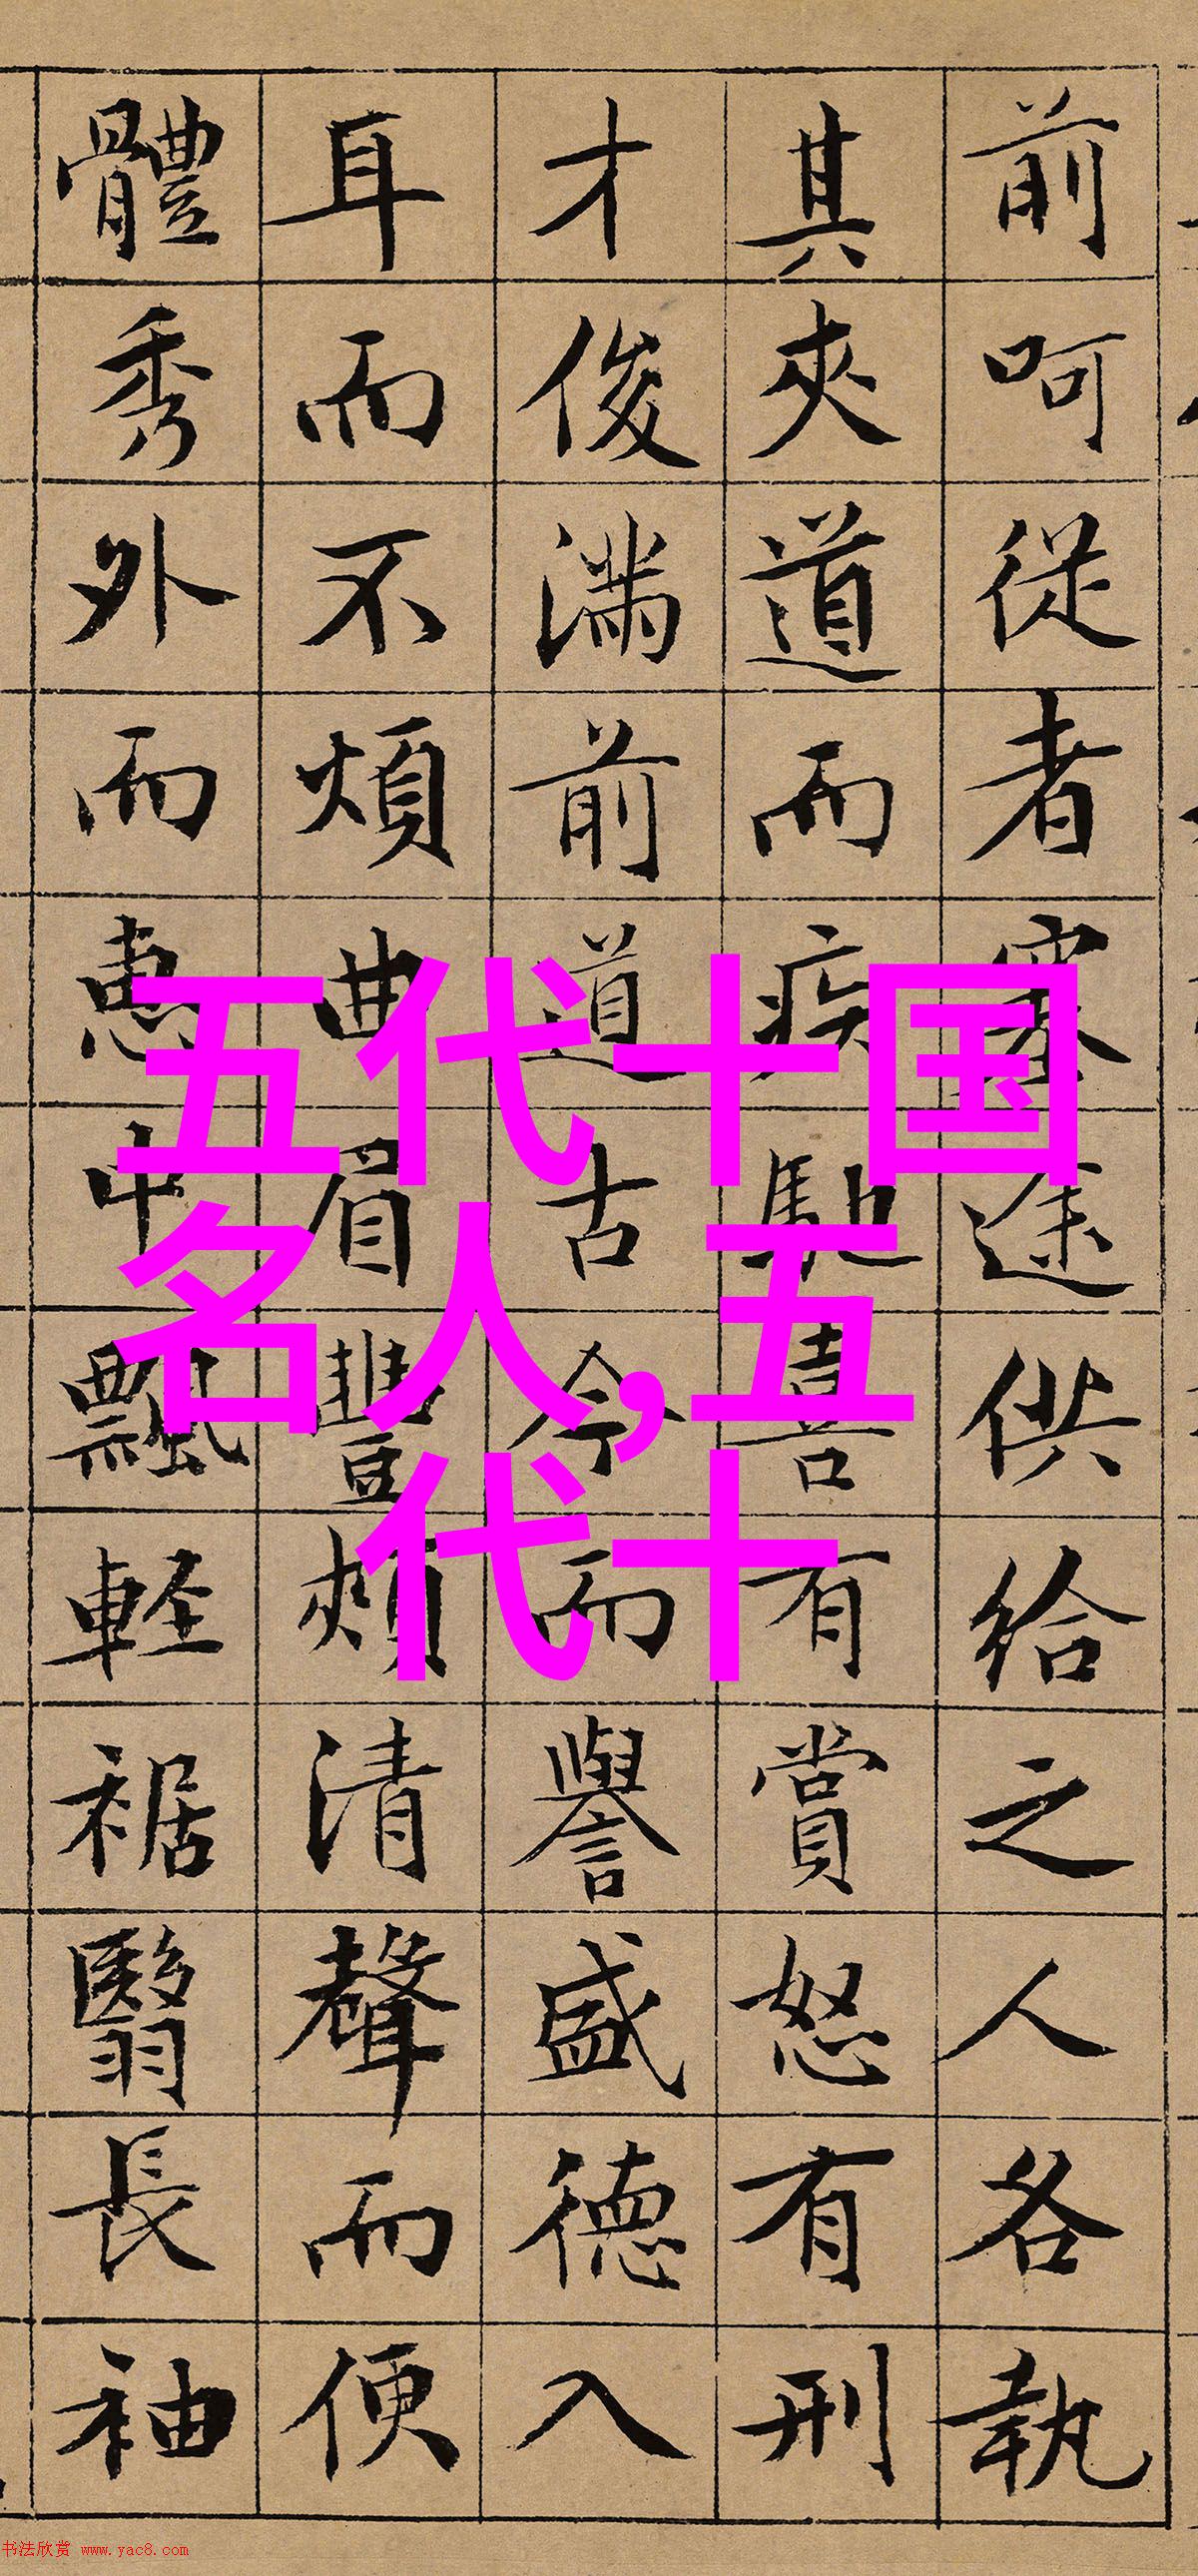 前呵從者塞途供給之人各執
其夾道而疾馳喜有賞怒有刑
才俊滿前道古今而譽盛德入
耳而不煩曲眉豐頰清聲而便
體秀外而惠中飄輕裾翳長袖
五代十国
名人,五
代十
书法欣赏 www.yac8.com